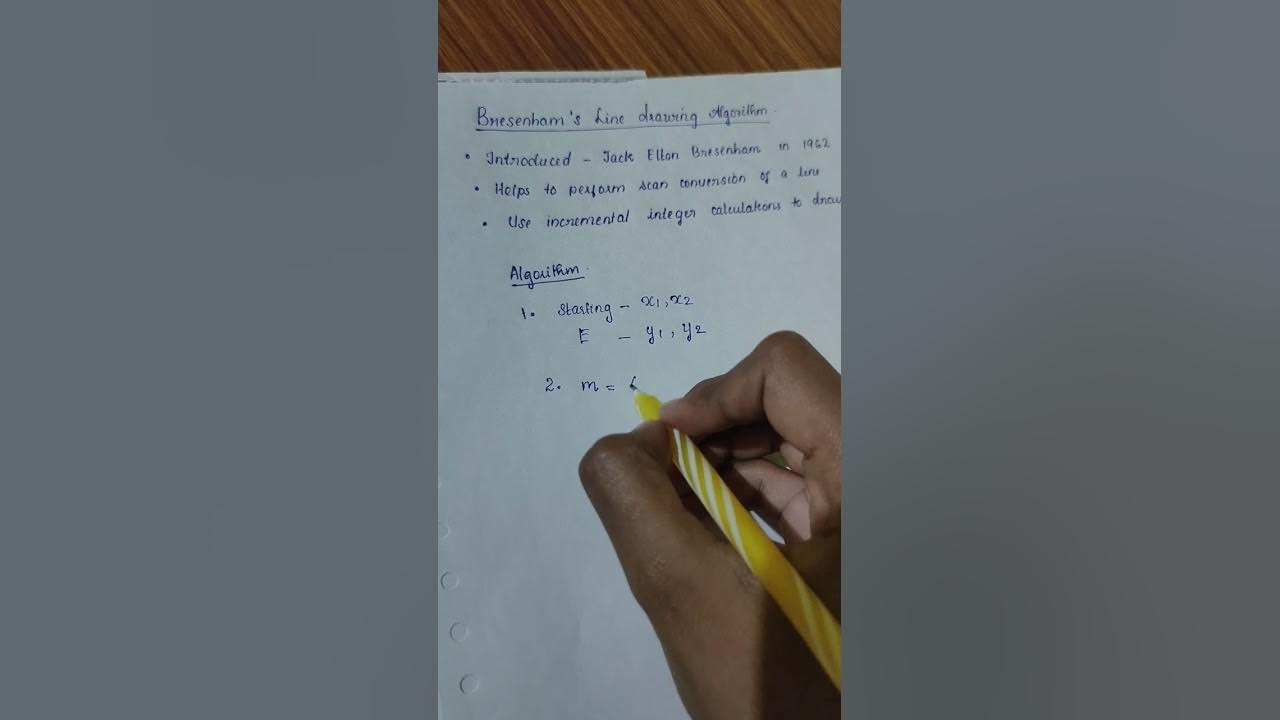 Bresenham's Line drawing Algorithm.
• Introduced - Jack Elton Bresenham in 1962
• Helps to perform scan conversion of a line
• Use incremental integer calculations to draw
Algorithm.
1. Starting - x1, x2
E - y1, y2
2. m = (